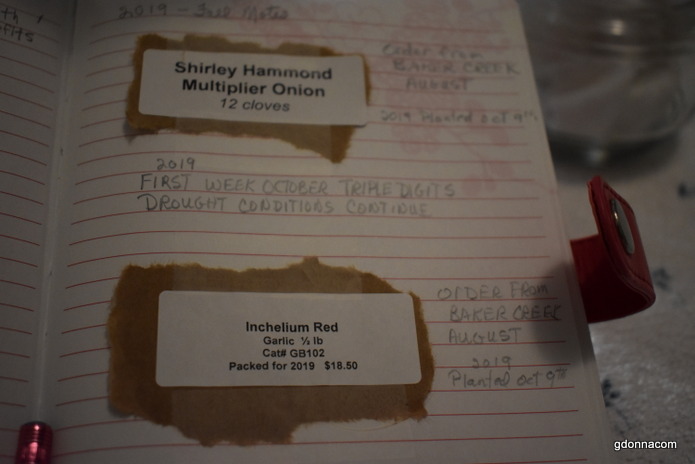 2019 - Fall Notes
Shirley Hammond
Multiplier Onion
12 cloves
Order from
BAKER CREEK
AUGUST
2019 Planted Oct 9th
2019
FIRST WEEK OCTOBER TRIPLE DIGITS
DROUGHT CONDITIONS CONTINUE
Inchelium Red
Garlic ½ lb
Cat# GB102
Packed for 2019 $18.50
ORDER FROM
BAKER CREEK
AUGUST
2019
Planted Oct 9TH
gdonnacom